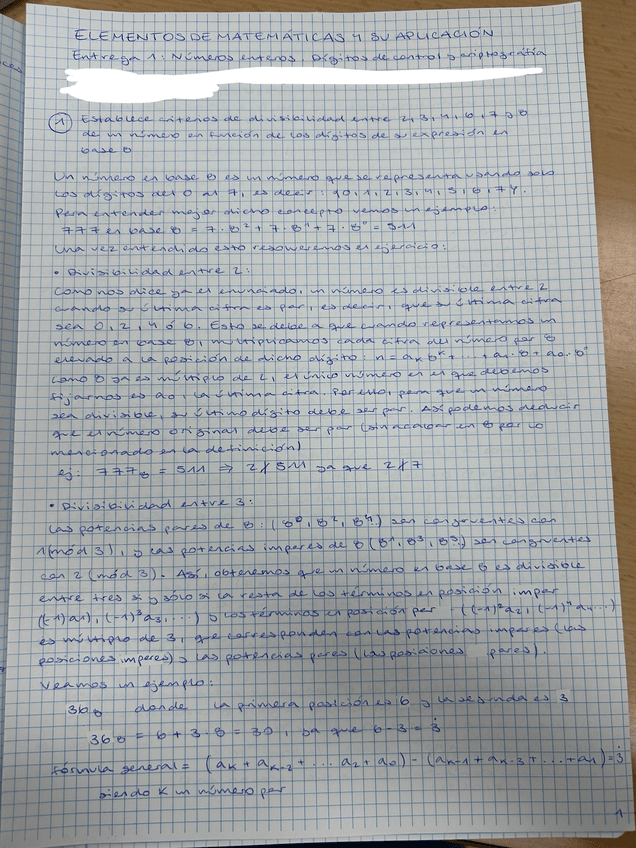 ELEMENTOS DE MATEMÁTICAS Y SU APLICACIÓN
Entrega 1: Números enteros. Dígitos de control y criptografía
① Establece criterios de divisibilidad entre 2, 3, 4, 6, 7 y 8
de un número en función de los dígitos de su expresión en
base 8
Un número en base 8 es un número que se representa usando solo
los dígitos del 0 al 7, es decir: {0, 1, 2, 3, 4, 5, 6, 7}.
Para entender mejor dicho concepto vemos un ejemplo:
777 en base 8 = 7·8² + 7·8¹ + 7·8⁰ = 511
Una vez entendido esto resolveremos el ejercicio:
• Divisibilidad entre 2:
Como nos dice ya el enunciado, un número es divisible entre 2
cuando su última cifra es par, es decir, que su última cifra
sea 0, 2, 4 ó 6. Esto se debe a que cuando representamos un
número en base 8, multiplicamos cada cifra del número por 8
elevado a la posición de dicho dígito: n = aₖ8ᵏ + ... + a₁·8 + a₀·8⁰
Como 8 ya es múltiplo de 2, el único número en el que debemos
fijarnos es a₀, la última cifra. Por ello, para que un número
sea divisible, su último dígito debe ser par. Así podemos deducir
que el número original debe ser par (sin acabar en 8 por lo
mencionado en la definición)
ej: 777₈ = 511 ⇒ 2∤511 ya que 2∤7
• Divisibilidad entre 3:
Las potencias pares de 8: (8⁰, 8², 8⁴...) son congruentes con
1 (mód 3), y las potencias impares de 8 (8¹, 8³, 8⁵...) son congruentes
con 2 (mód 3). Así, obtenemos que un número en base 8 es divisible
entre tres si y sólo si la resta de los términos en posición impar
((-1)a₁), (-1)³a₃, ...) y los términos en posición par ((-1)²a₂, (-1)⁴a₄...)
es múltiplo de 3, que corresponden con las potencias impares (las
posiciones impares) y las potencias pares (las posiciones pares).
Veamos un ejemplo:
36₈ donde la primera posición es 6 y la segunda es 3
36₈ = 6 + 3·8 = 30, ya que 6-3 = 3̇
Fórmula general = (aₖ + aₖ₋₂ + ... a₂ + a₀) - (aₖ₋₁ + aₖ₋₃ + ... + a₁) = 3̇
siendo K un número par
1